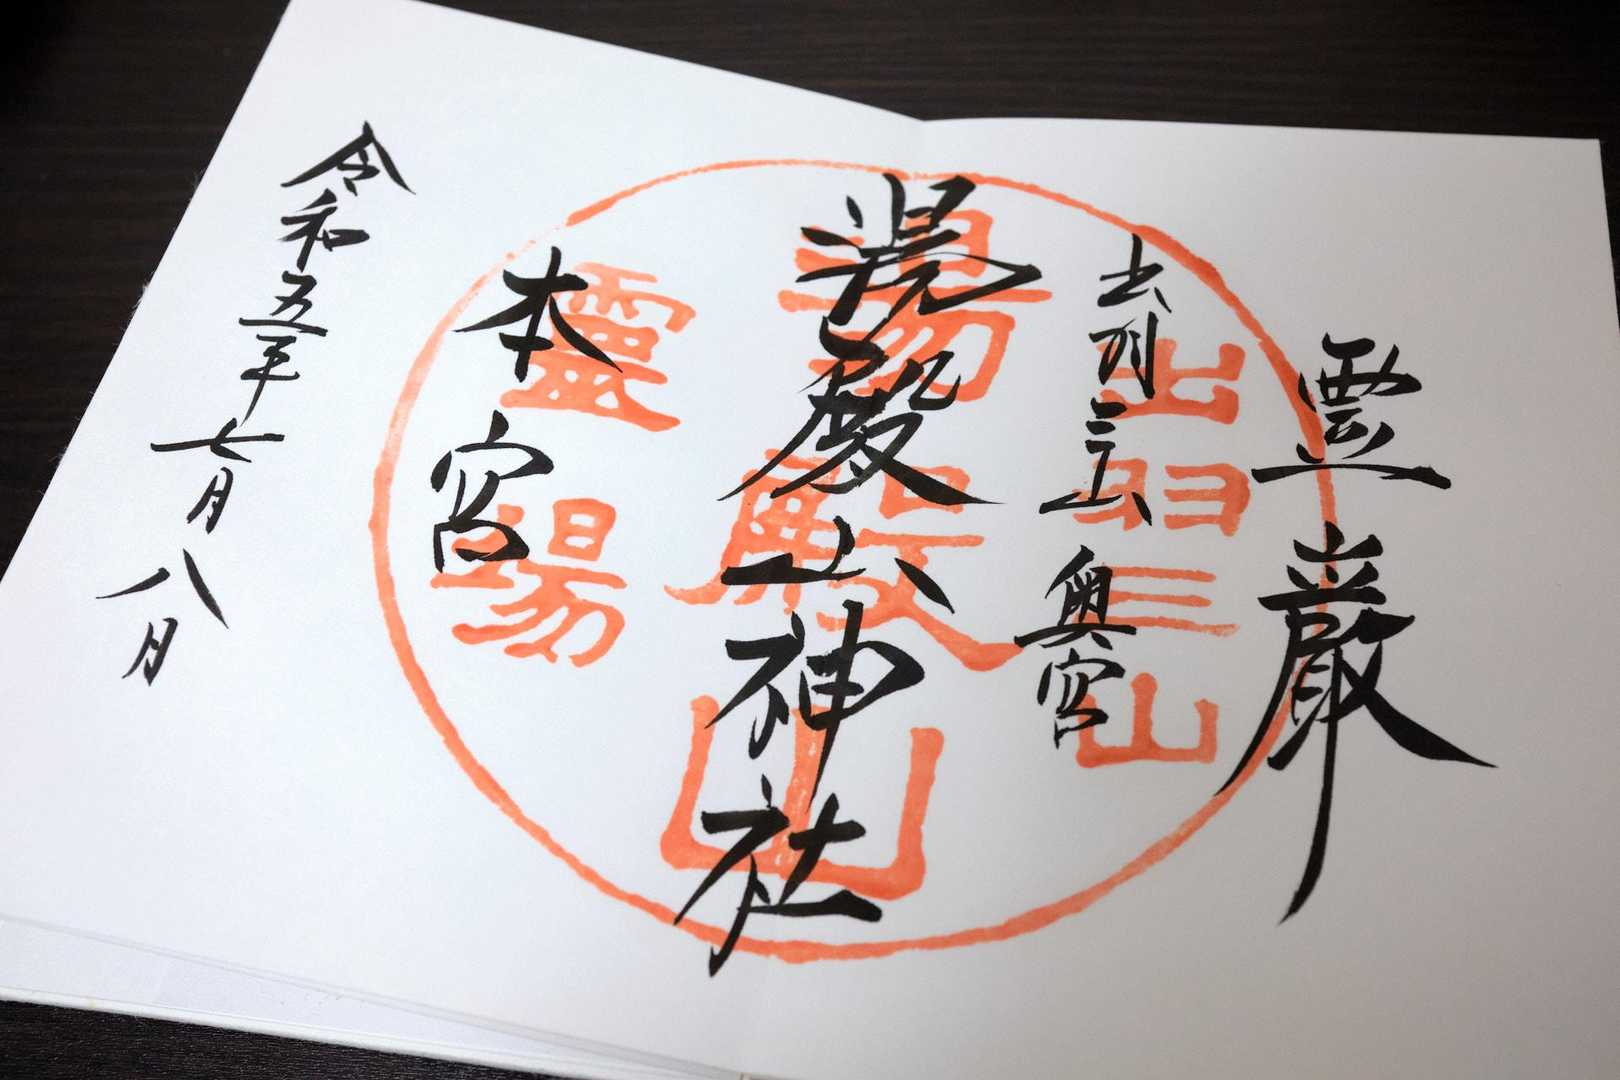 霊巌
出羽三山奥宮
湯殿山神社
本宮
令和五年七月八日
出羽三山
湯殿山
靈場